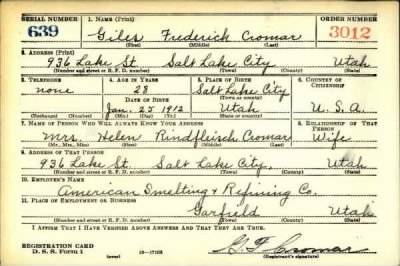 SERIAL NUMBER 1. NAME (Print) ORDER NUMBER
639 Giles Frederick Cromar 3012
(First) (Middle) (Last)
2. ADDRESS (Print)
936 Lake St. Salt Lake City Utah
(Number and street or R. F. D. number) (Town) (County) (State)
3. TELEPHONE 4. AGE IN YEARS 5. PLACE OF BIRTH 6. COUNTRY OF CITIZENSHIP
none 28 Salt Lake City
DATE OF BIRTH (Town or county)
Jan. 25 1912 Utah U. S. A.
(Exchange) (Number) (Mo.) (Day) (Yr.) (State or country)
7. NAME OF PERSON WHO WILL ALWAYS KNOW YOUR ADDRESS 8. RELATIONSHIP OF THAT PERSON
Mrs. Helen Rindfleisch Cromar Wife
(Mr., Mrs., Miss) (First) (Middle) (Last)
9. ADDRESS OF THAT PERSON
936 Lake St. Salt Lake City, Utah
(Number and street or R. F. D. number) (Town) (County) (State)
10. EMPLOYER'S NAME
American Smelting & Refining Co.
11. PLACE OF EMPLOYMENT OR BUSINESS
Garfield Utah
(Number and street or R. F. D. number) (Town) (County) (State)
I AFFIRM THAT I HAVE VERIFIED ABOVE ANSWERS AND THAT THEY ARE TRUE.
REGISTRATION CARD
D. S. S. Form 1 (over) 16-17105 G F Cromar
(Registrant's signature)